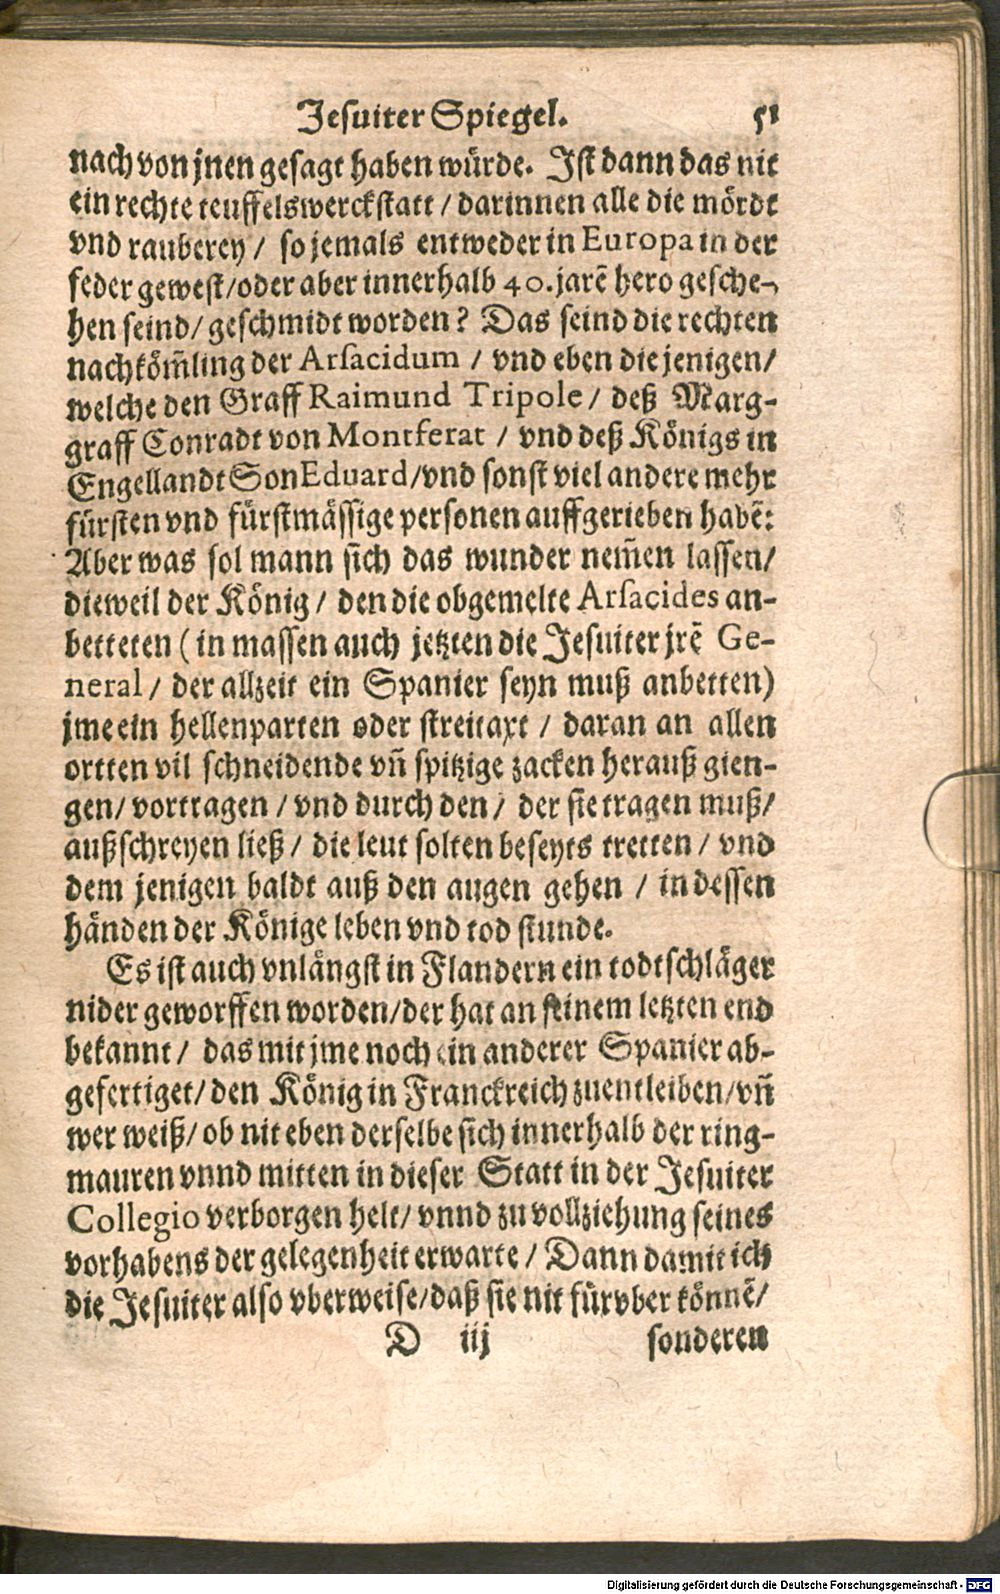 Jesuiter Spiegel. 51
nach von jnen gesagt haben würde. Ist dann das nit
ein rechte teuffelswerckstatt / darinnen alle die mördt
vnd rauberey / so jemals entweder in Europa in der
feder gewest/oder aber innerhalb 40. jarẽ hero gesche-
hen seind/ geschmidt worden? Das seind die rechten
nachköm̃ling der Arsacidum / vnd eben die jenigen/
welche den Graff Raimund Tripole / deß Marg-
graff Conradt von Montferat / vnd deß Königs in
Engellandt Son Eduard/vnd sonst viel andere mehr
fürsten vnd fürstmässige personen auffgerieben habẽ:
Aber was sol mann sich das wunder nem̃en lassen/
dieweil der König / den die obgemelte Arsacides an-
betteten (in massen auch jetzten die Jesuiter jrẽ Ge-
neral / der allzeit ein Spanier seyn muß anbetten)
jme ein hellenparten oder streitaxt / daran an allen
ortten vil schneidende vñ spitzige zacken herauß gien-
gen/ vortragen / vnd durch den / der sie tragen muß/
außschreyen ließ / die leut solten beseyts tretten / vnd
dem jenigen baldt auß den augen gehen / in dessen
händen der Könige leben vnd tod stunde.
Es ist auch vnlängst in Flandern ein todtschläger
nider geworffen worden/der hat an seinem letzten end
bekannt / das mit jme noch ein anderer Spanier ab-
gefertiget/ den König in Franckreich zuentleiben/vñ
wer weiß/ ob nit eben derselbe sich innerhalb der ring-
mauren vnnd mitten in dieser Statt in der Jesuiter
Collegio verborgen helt/ vnnd zu vollziehung seines
vorhabens der gelegenheit erwarte / Dann damit ich
die Jesuiter also vberweise/daß sie nit fürvber könnẽ/
D iij sonderen
Digitalisierung gefördert durch die Deutsche Forschungsgemeinschaft - DFG